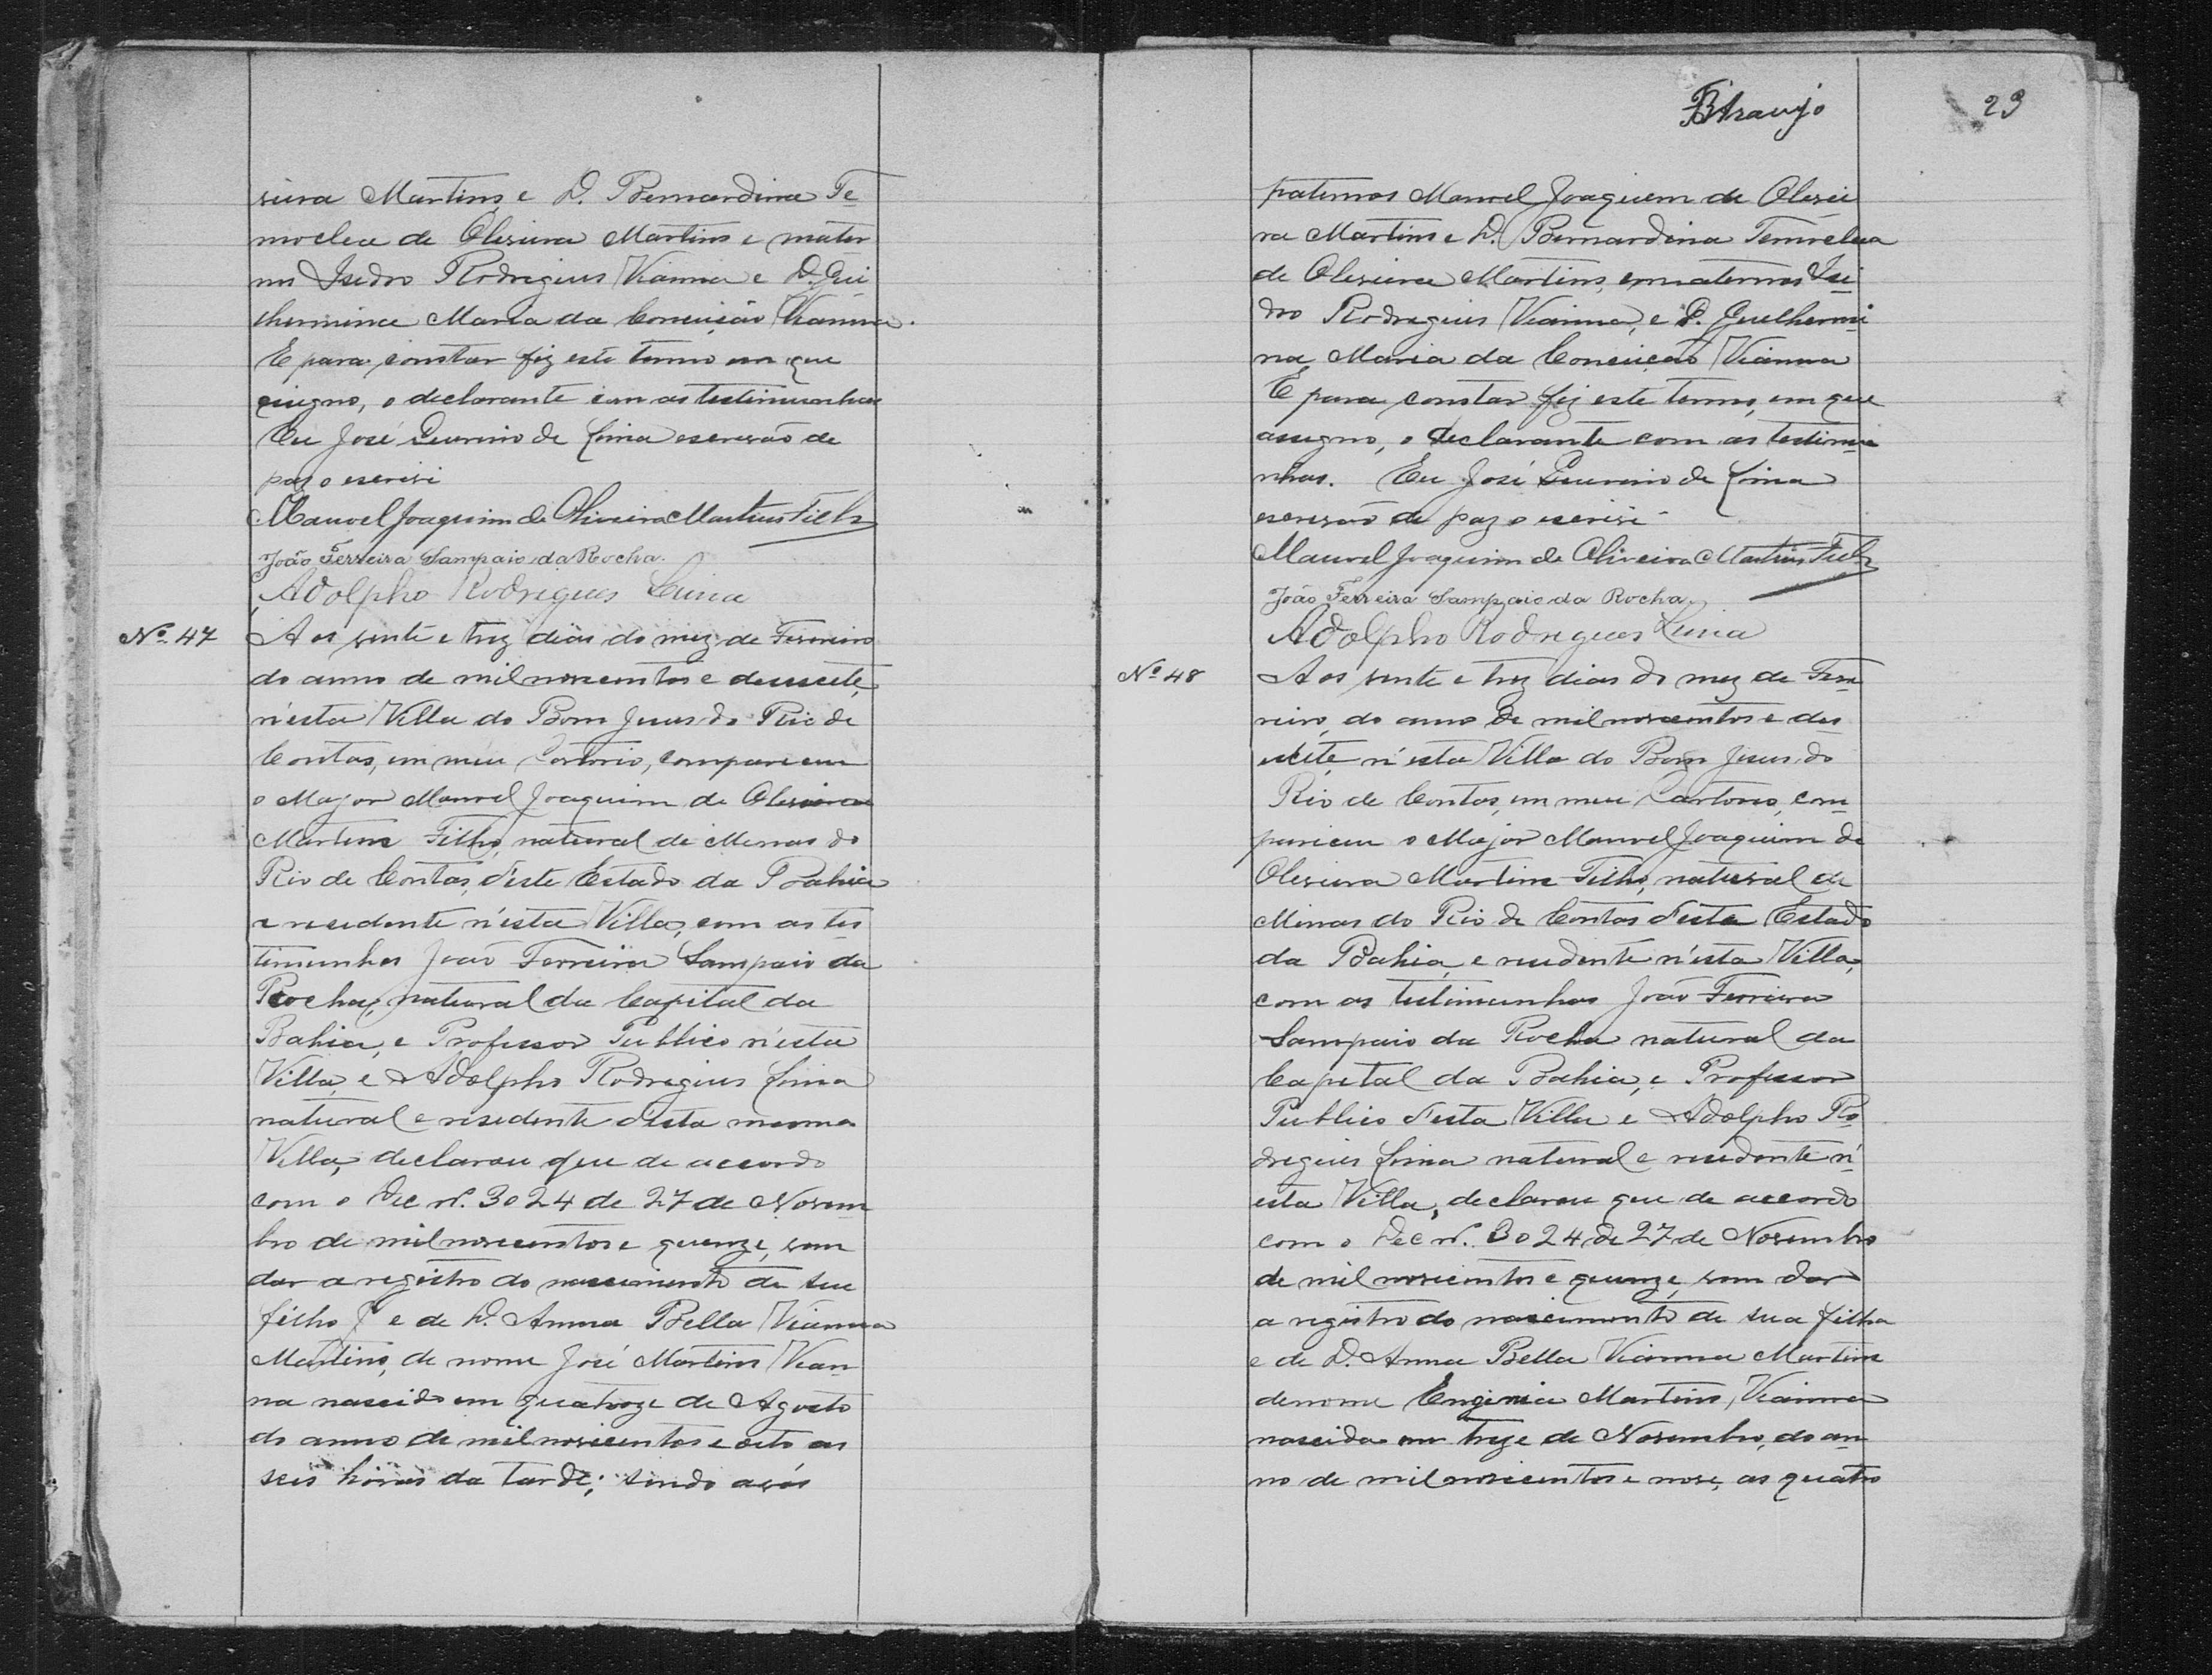 veira Martins, e D. Bernardina Te
moclea de Oliveira Martins e mater
nos Isidro Rodrigues Vianna e D. Gui
lhermina Maria da Conceição Vianna.
E para constar fiz este termo em que
assigno, o declarante com as testimunhas
Eu José de Lima escrivão de
paz o escrivi
Manoel Joaquim de Oliveira Martins Filho
João Ferreira Sampaio da Rocha.
Adolpho Rodrigues Lima
Nº 47 Aos vinte e trez dias do mez de Fevereiro
do anno de mil novecentos e deseseite,
n'esta Villa do Bom Jesus do Rio de
Contas, em meu Cartorio, compareceu
o Major Manoel Joaquim de Oliveira
Martins Filho, natural de Minas do
Rio de Contas, d'este Estado da Bahia
e residente n'esta Villa, com as tes
timunhas João Ferreira Sampaio da
Rocha, natural da Capital da
Bahia, e Professor Publico n'esta
Villa, e Adolpho Rodrigues Lima
natural e residente d'esta mesma
Villa, declarou que de accordo
com o Dec nº. 3024 de 27 de Novem
bro de mil novecentos e quinze, vem
dar a registro do nascimento de seu
filho e de D. Anna Bella Vianna
Martins, de nome José Martins Vian
na nascido em quatroze de Agosto
do anno de mil novecentos e oito as
seis horas da tarde; sendo avós
BAraujo 29
paternos Manoel Joaquim de Olivei
ra Martins e D. Bernardina Temoclea
de Oliveira Martins, e maternos Isi
dro Rodrigues Vianna, e D. Guilhermi
na Maria da Conceição Vianna
E para constar fiz este termo, em que
assigno, o declarante com as testimu
nhas. Eu José de Lima
escrivão de paz o escrivi
Manoel Joaquim de Oliveira Martins Filho
João Ferreira Sampaio da Rocha.
Adolpho Rodrigues Lima
Nº 48 Aos vinte e trez dias do mez de Feve
reiro, do anno de mil novecentos e des
eseite, n'esta Villa do Bom Jesus do
Rio de Contas, em meu Cartorio, com
pareceu o Major Manoel Joaquim de
Oliveira Martins Filho, natural de
Minas do Rio de Contas d'este Estado
da Bahia, e residente n'esta Villa,
com as testimunhas João Ferreira
Sampaio da Rocha natural da
Capital da Bahia, e Professor
Publico d'esta Villa e Adolpho Ro
drigues Lima natural e residente n'
esta Villa, declarou que de accordo
com o Dec nº. 3024 de 27 de Novembro
de mil novecentos e quinze, vem dar
a registro do nascimento de sua filha
e de D. Anna Bella Vianna Martins
de nome Eugenia Martins Vianna
nascida em treze de Novembro, do an
no de mil novecentos e nove, as quatro